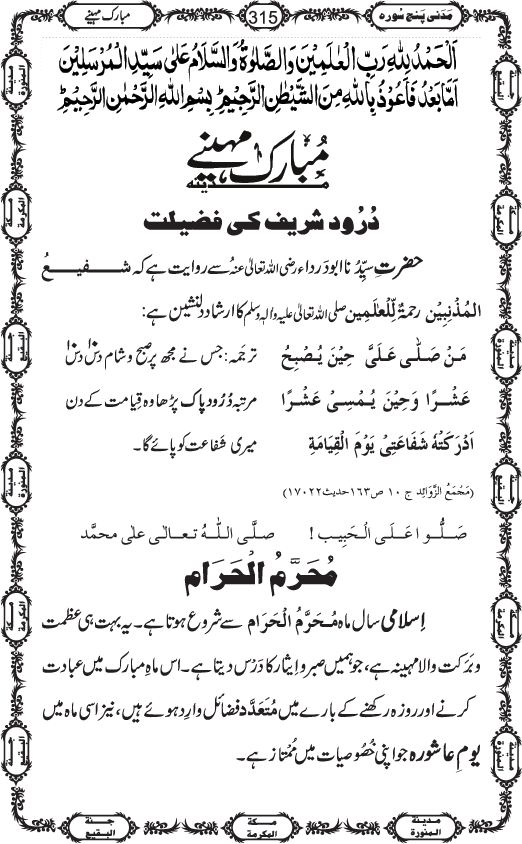 مَدَنی پنج سورہ
315
مبارک مہینے
اَلْحَمْدُ لِلّٰہِ رَبِّ الْعٰلَمِیْنَ وَالصَّلٰوۃُ وَالسَّلَامُ عَلٰی سَیِّدِ الْمُرْسَلِیْنَ
اَمَّا بَعْدُ فَاَعُوْذُ بِاللّٰہِ مِنَ الشَّیْطٰنِ الرَّجِیْمِ ؕ بِسْمِ اللّٰہِ الرَّحْمٰنِ الرَّحِیْمِ ؕ
مُبارک مہینے
دُرُود شریف کی فضیلت
حضرتِ سیِّدُنا ابودرداء رضی اللہ تعالیٰ عنہُ سے روایت ہے کہ شفیعُ
المُذْنِبِیْن رحمۃٌ لِّلْعٰلَمِین صلی اللہ تعالیٰ علیہ والہٖ وسلم کا ارشادِ دلنشین ہے:
مَنْ صَلّٰی عَلَیَّ حِیْنَ یُصْبِحُ ترجَمہ: جس نے مجھ پر صبح و شام دس دس
عَشْرًا وَحِیْنَ یُمْسِیْ عَشْرًا مرتبہ دُرُود پاک پڑھا وہ قِیامت کے دن
اَدْرَکَتْہُ شَفَاعَتِیْ یَوْمَ الْقِیَامَۃِ میری شفاعت کو پائے گا۔
(مَجْمَعُ الزَّوَائِد ج ۱۰ ص۱۶۳ حدیث۱۷۰۲۲)
صَلُّوا عَلَی الْحَبِیب! صلَّی اللہُ تعالٰی علٰی محمَّد
مُحَرَّمُ الْحَرام
اِسلامی سال ماہِ مُحَرَّمُ الْحَرام سے شروع ہوتا ہے۔ یہ بہت ہی عظمت
و بَرَکت والا مہینہ ہے، جو ہمیں صبر و ایثار کا دَرْس دیتا ہے۔ اس ماہِ مبارک میں عبادت
کرنے اور روزہ رکھنے کے بارے میں مُتَعَدَّد فضائل وارِد ہوئے ہیں، نیز اسی ماہ میں
یومِ عاشورہ جو اپنی خُصُوصیات میں مُمتاز ہے۔
مدینۃ المنورۃ
مکۃ المکرمۃ
جنۃ البقیع